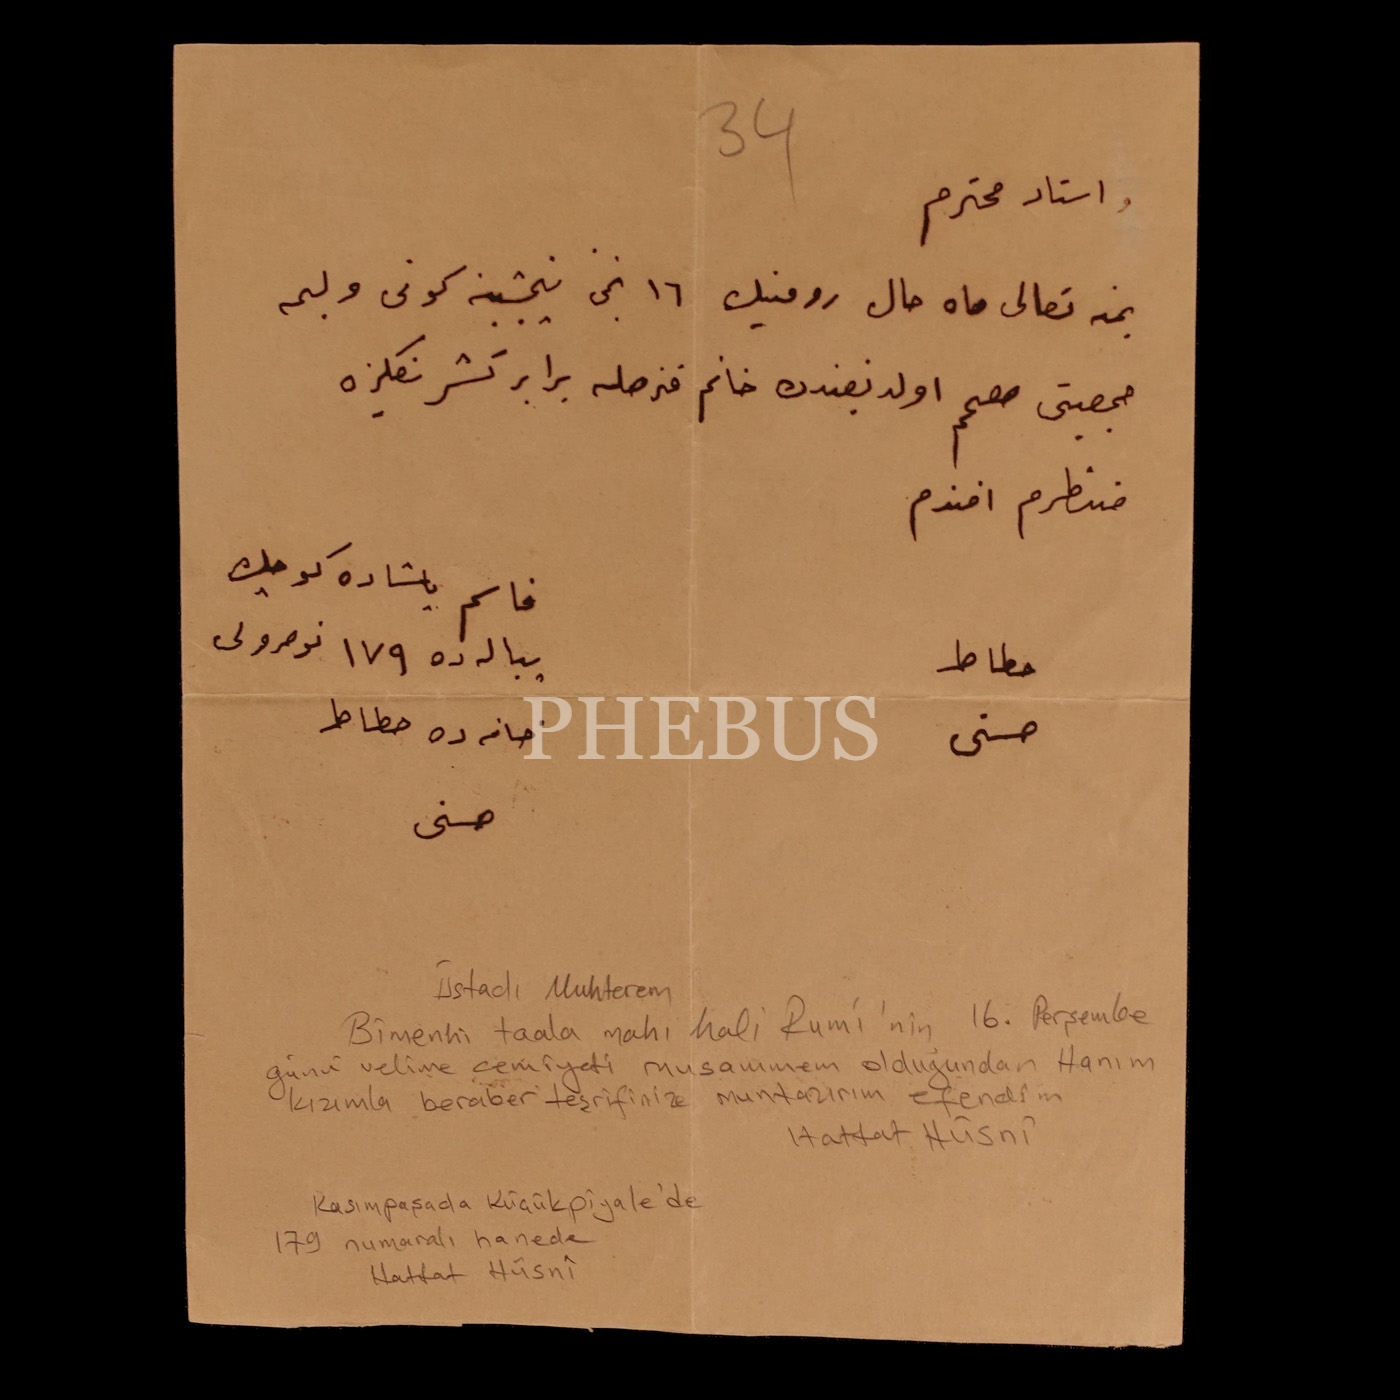 34
استاد محترم
بمنه تعالى ماه حال رومينك ١٦ نجى پنجشنبه كونى وليمه
جمعيتى مصمم اولديغندن خانم قزمله برابر تشريفكزه
منتظرم افندم
قاسم پاشاده كوچك
پياله ده ١٧٩ نومرولى
خانه ده خطاط
حسنى
خطاط
حسنى
PHEBUS
Üstadı Muhterem
Bîmenhi taala mahı hali Rumî'nin 16. Perşembe
günü velime cemiyeti musammem olduğundan Hanım
kızımla beraber teşrifinize muntazırım efendim
Hattat Hüsnî
Kasımpaşada Küçükpiyale'de
179 numaralı hanede
Hattat Hüsnî